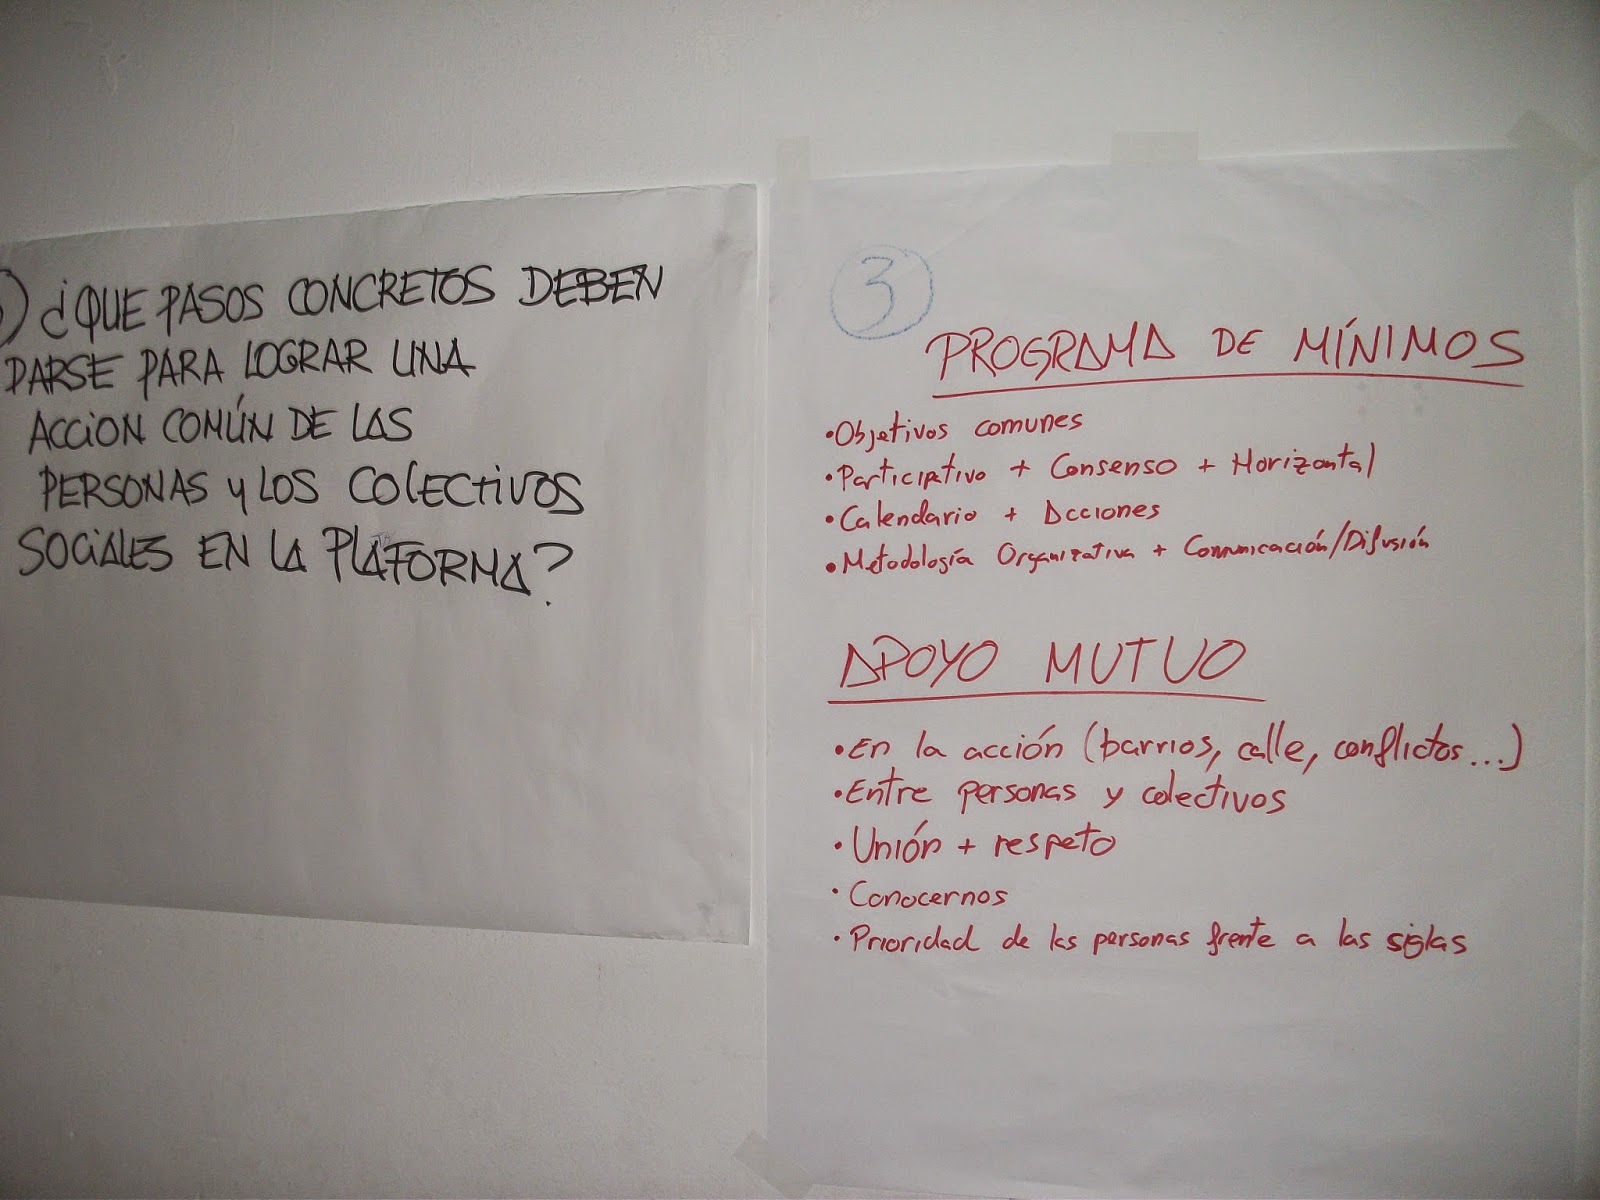 ) ¿QUE PASOS CONCRETOS DEBEN
DARSE PARA LOGRAR UNA
ACCION COMÚN DE LAS
PERSONAS y LOS COLECTIVOS
SOCIALES EN LA PLATAFORMA?
3
PROGRAMA DE MÍNIMOS
•Objetivos comunes
•Participativo + Consenso + Horizontal
•Calendario + Acciones
•Metodología Organizativa + Comunicación/Difusión
APOYO MUTUO
•En la acción (barrios, calle, conflictos...)
•Entre personas y colectivos
•Unión + respeto
•Conocernos
•Prioridad de las personas frente a las siglas